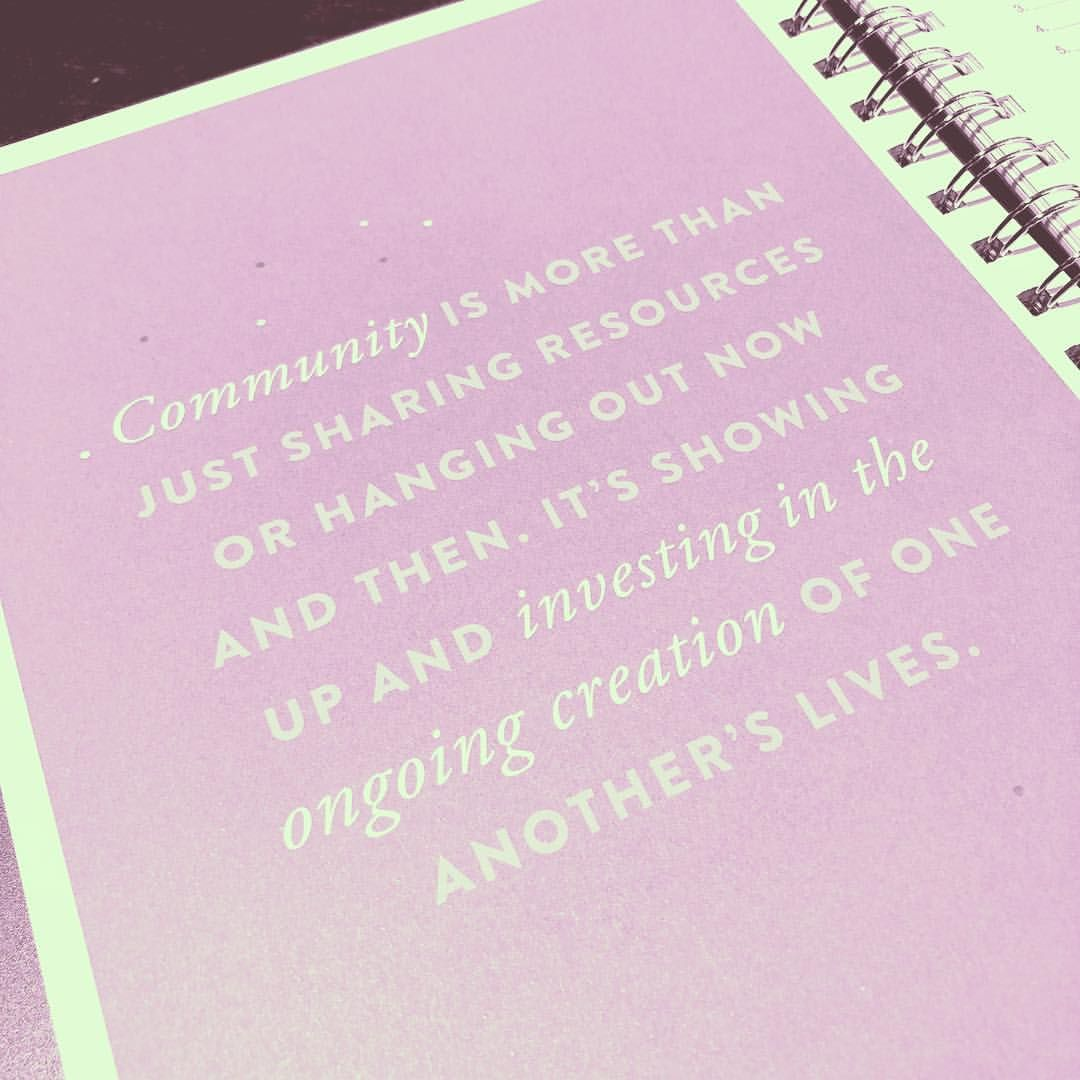 Community IS MORE THAN
JUST SHARING RESOURCES
OR HANGING OUT NOW
AND THEN. IT'S SHOWING
UP AND investing in the
ongoing creation OF ONE
ANOTHER'S LIVES.
3.
4.
5.